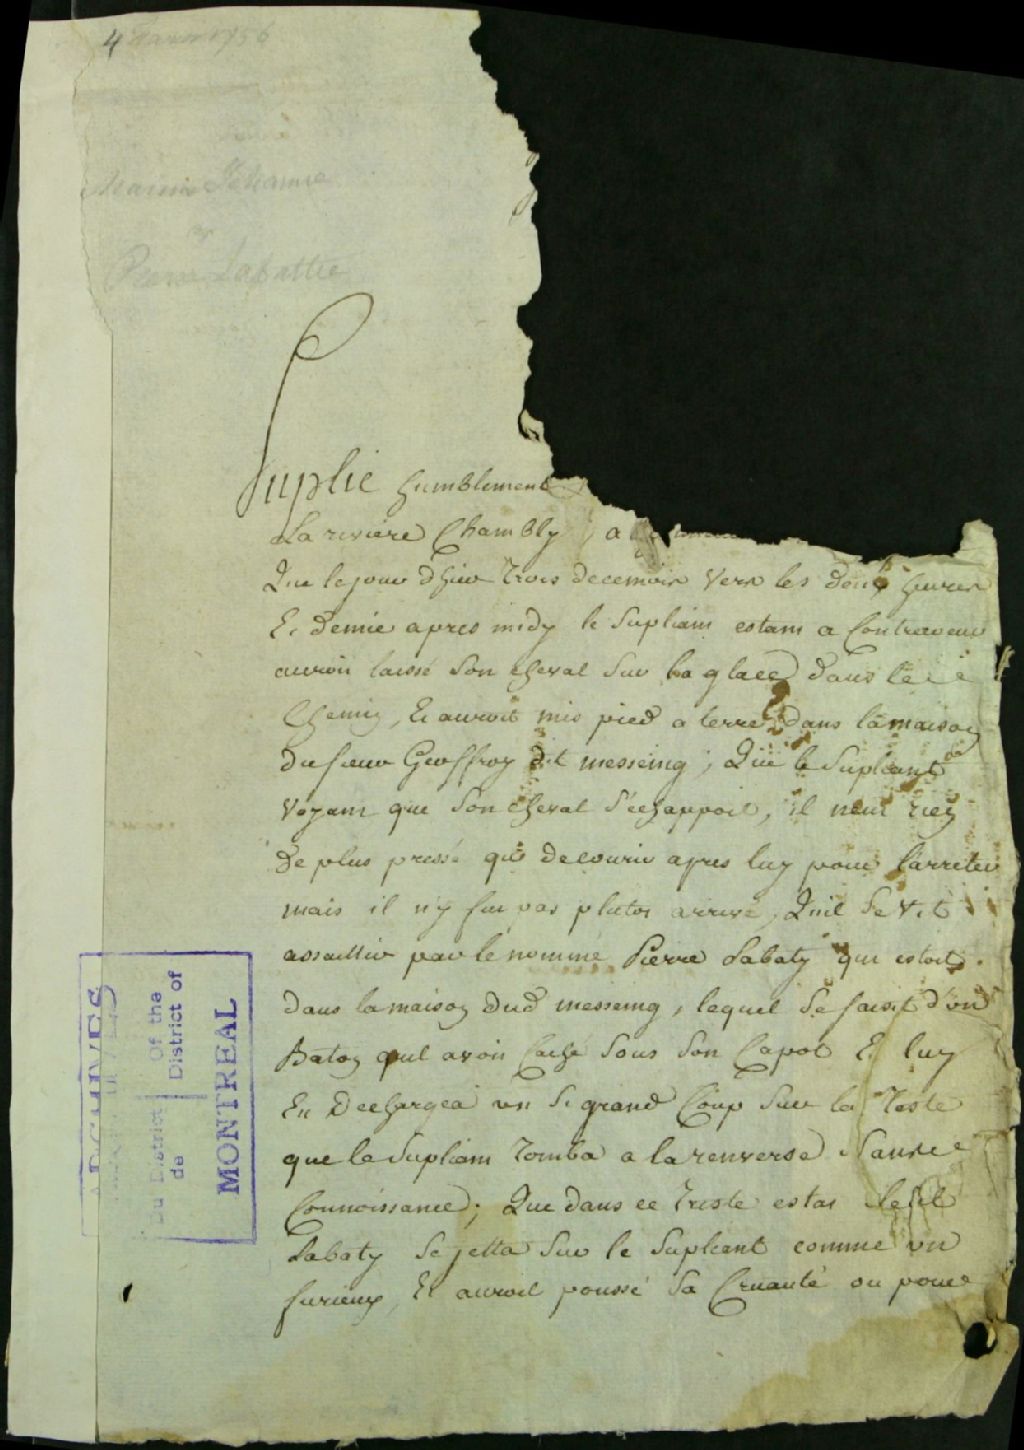 4 1756
Pierre Labattie
Suplie humblement
La riviere Chambly, a
Que le jour d'hier Trois decembre vers les deux heures
Et demie apres midy le Supliant estant a Contrecoeur
auroit laissé Son cheval Sur la glace dans le
Chemin, Et auroit mis pied a terre dans la maison
du sieur Geoffroy dit messeing; Que le Supliant
Voyant que Son cheval S'echappoit, il neut rien
de plus pressé que de courir apres luy pour l'arreter
mais il n'y fut pas plutos arrivé, Quil Se vit
assaillir par le nommé Pierre Labaty qui estoit
dans la maison dud messeing, lequel Se saisit d'un
Baton quil avoit Caché Sous Son Capot Et luy
En Dechargea un Si grand Coup Sur la Teste
que le Supliant Tomba a la renverse Sans
Connoissance; Que dans ce triste estat led
Labaty Se jetta Sur le Supliant comme un
furieux, Et auroit poussé Sa Cruauté ou pour
ARCHIVES
Du District | Of the
de | District of
MONTREAL